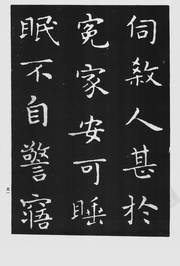 伺杀人甚於
冤家安可睡
眠不自警寤